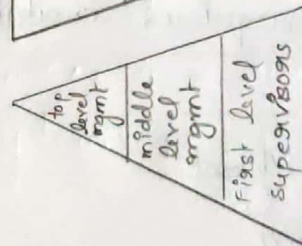 top
level
mgmt
middle
level
mgmt
First level
supervisors